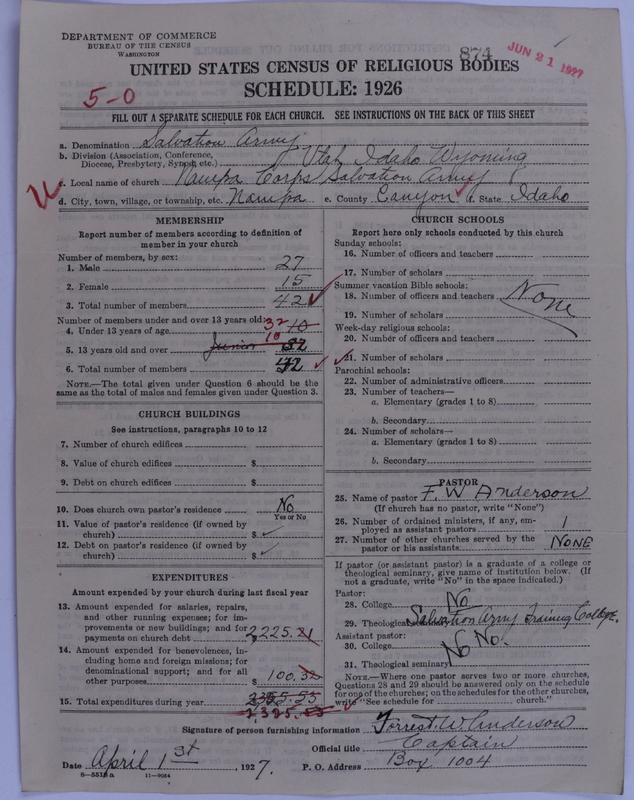 DEPARTMENT OF COMMERCE
BUREAU OF THE CENSUS
WASHINGTON
874
JUN 21 1927
UNITED STATES CENSUS OF RELIGIOUS BODIES
SCHEDULE: 1926
5-0
FILL OUT A SEPARATE SCHEDULE FOR EACH CHURCH. SEE INSTRUCTIONS ON THE BACK OF THIS SHEET
a. Denomination Salvation Army
b. Division (Association, Conference, Diocese, Presbytery, Synod, etc.) Utah Idaho Wyoming
c. Local name of church Nampa Corps Salvation Army
d. City, town, village, or township, etc. Nampa e. County Canyon f. State Idaho
MEMBERSHIP
Report number of members according to definition of
member in your church
Number of members, by sex:
1. Male 27
2. Female 15
3. Total number of members 42
Number of members under and over 13 years old:
4. Under 13 years of age 32 10
10
5. 13 years old and over Junior 32
6. Total number of members 42
NOTE.—The total given under Question 6 should be the
same as the total of males and females given under Question 3.
CHURCH BUILDINGS
See instructions, paragraphs 10 to 12
7. Number of church edifices
8. Value of church edifices $
9. Debt on church edifices $
10. Does church own pastor's residence No
Yes or No
11. Value of pastor's residence (if owned by
church) $
12. Debt on pastor's residence (if owned by
church) $
EXPENDITURES
Amount expended by your church during last fiscal year
13. Amount expended for salaries, repairs,
and other running expenses; for im-
provements or new buildings; and for
payments on church debt 2,225.21
14. Amount expended for benevolences, in-
cluding home and foreign missions; for
denominational support; and for all
other purposes $ 100.32
15. Total expenditures during year
2325.53
CHURCH SCHOOLS
Report here only schools conducted by this church
Sunday schools:
16. Number of officers and teachers
17. Number of scholars
Summer vacation Bible schools:
18. Number of officers and teachers None
19. Number of scholars
Week-day religious schools:
20. Number of officers and teachers
21. Number of scholars
Parochial schools:
22. Number of administrative officers
23. Number of teachers—
a. Elementary (grades 1 to 8)
b. Secondary
24. Number of scholars—
a. Elementary (grades 1 to 8)
b. Secondary
PASTOR
25. Name of pastor F. W. Anderson
(If church has no pastor, write "None")
26. Number of ordained ministers, if any, em-
ployed as assistant pastors 1
27. Number of other churches served by the
pastor or his assistants NONE
If pastor (or assistant pastor) is a graduate of a college or
theological seminary, give name of institution below. (If
not a graduate, write "No" in the space indicated.)
Pastor:
28. College No
29. Theological Salvation Army Training College.
Assistant pastor:
30. College No No.
31. Theological seminary
NOTE.—Where one pastor serves two or more churches,
Questions 28 and 29 should be answered only on the schedule
for one of the churches; on the schedules for the other churches,
write "See schedule for church."
Signature of person furnishing information Forrest W. Anderson
Official title Captain
Date April 1st, 1927. P. O. Address Box 1004
8—5518a 11—9064